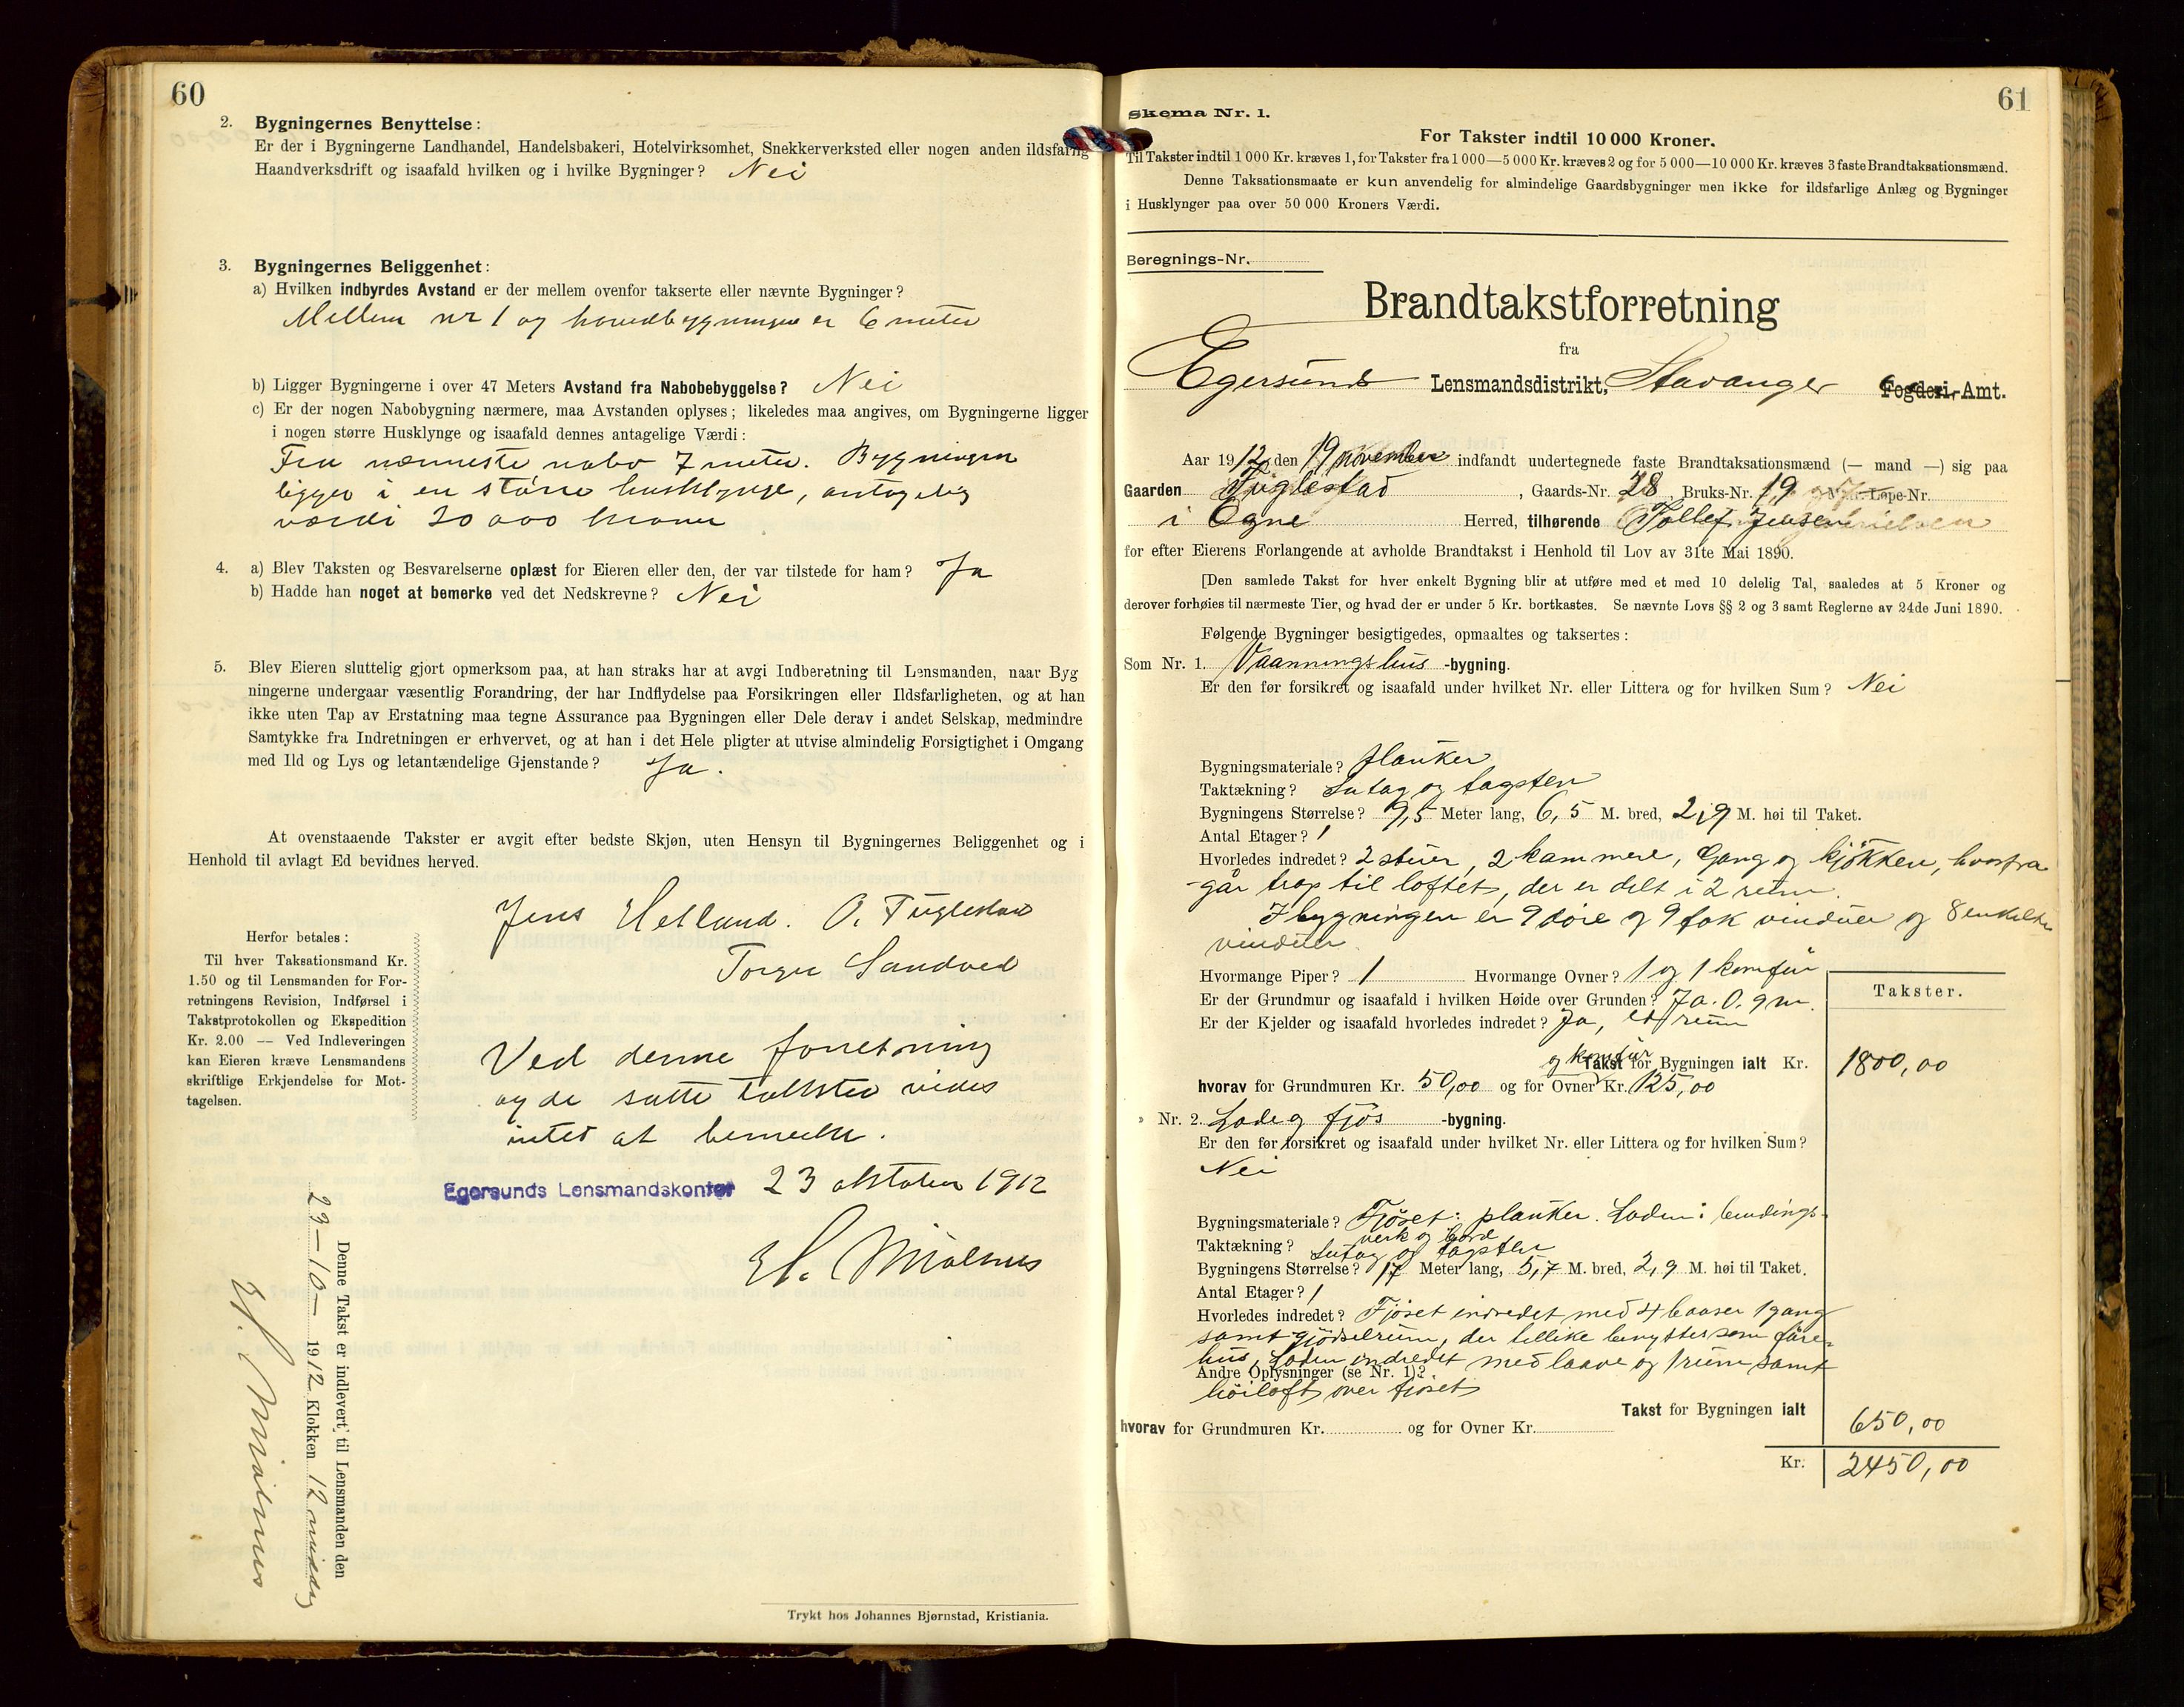 60
2. Bygningernes Benyttelse:
Er der i Bygningerne Landhandel, Handelsbakeri, Hotelvirksomhet, Snekkerverksted eller nogen anden ildsfarlig
Haandverksdrift og isaafald hvilken og i hvilke Bygninger? Nei
3. Bygningernes Beliggenhet:
a) Hvilken indbyrdes Avstand er der mellem ovenfor takserte eller nævnte Bygninger?
Mellem nr 1 og hovedbygningen er 6 meter
b) Ligger Bygningerne i over 47 Meters Avstand fra Nabobebyggelse? Nei
c) Er der nogen Nabobygning nærmere, maa Avstanden oplyses; likeledes maa angives, om Bygningerne ligger
i nogen større Husklynge og isaafald dennes antagelige Værdi:
Fra nærmeste nabo 7 meter. Bygningen
ligger i en større husklynge, antagelig
værdi 20 000 kroner
4. a) Blev Taksten og Besvarelserne oplæst for Eieren eller den, der var tilstede for ham? Ja
b) Hadde han noget at bemerke ved det Nedskrevne? Nei
5. Blev Eieren sluttelig gjort opmerksom paa, at han straks har at avgi Indberetning til Lensmanden, naar Byg
ningerne undergaar væsentlig Forandring, der har Indflydelse paa Forsikringen eller Ildsfarligheten, og at han
ikke uten Tap av Erstatning maa tegne Assurance paa Bygningen eller Dele derav i andet Selskap, medmindre
Samtykke fra Indretningen er erhvervet, og at han i det Hele pligter at utvise almindelig Forsigtighet i Omgang
med Ild og Lys og letantændelige Gjenstande? Ja.
At ovenstaaende Takster er avgit efter bedste Skjøn, uten Hensyn til Bygningernes Beliggenhet og i
Henhold til avlagt Ed bevidnes herved.
Jens Helland. O. Fuglestad
Torger Sandved
Herfor betales:
Til hver Taksationsmand Kr.
1.50 og til Lensmanden for For-
retningens Revision, Indførsel i
Takstprotokollen og Ekspedition
Kr. 2.00 — Ved Indleveringen
kan Eieren kræve Lensmandens
skriftlige Erkjendelse for Mot-
tagelsen.
Ved denne forretning
og de satte takster vides
intet at bemerke.
Egersunds Lensmandskontor 23 oktober 1912
Denne Takst er indlevert til Lensmanden den
23–10– 1912 Klokken 12 middag
Trykt hos Johannes Bjørnstad, Kristiania.
61
Skema Nr. 1.
For Takster indtil 10 000 Kroner.
Til Takster indtil 1 000 Kr. kræves 1, for Takster fra 1 000—5 000 Kr. kræves 2 og for 5 000—10 000 Kr. kræves 3 faste Brandtaksationsmænd.
Denne Taksationsmaate er kun anvendelig for almindelige Gaardsbygninger men ikke for ildsfarlige Anlæg og Bygninger
i Husklynger paa over 50 000 Kroners Værdi.
Beregnings-Nr.
Brandtakstforretning
fra
Egersund Lensmandsdistrikt, Stavanger Fogderi, Amt.
Aar 1912, den 19 november indfandt undertegnede faste Brandtaksationsmænd (— mand —) sig paa
Gaarden Fuglestad, Gaards-Nr. 28, Bruks-Nr. 19 Løpe-Nr.
i Ogne Herred, tilhørende Tollef Jensen
for efter Eierens Forlangende at avholde Brandtakst i Henhold til Lov av 31te Mai 1890.
[Den samlede Takst for hver enkelt Bygning blir at utføre med et med 10 delelig Tal, saaledes at 5 Kroner og
derover forhøies til nærmeste Tier, og hvad der er under 5 Kr. bortkastes. Se nævnte Lovs §§ 2 og 3 samt Reglerne av 24de Juni 1890.
Følgende Bygninger besigtigedes, opmaaltes og taksertes:
Som Nr. 1. Vaanningshus -bygning.
Er den før forsikret og isaafald under hvilket Nr. eller Littera og for hvilken Sum? Nei
Bygningsmateriale? planker
Taktækning? Sutag og tagsten
Bygningens Størrelse? 9,5 Meter lang, 6,5 M. bred, 2,9 M. høi til Taket.
Antal Etager? 1
Hvorledes indredet? 2 stuer, 2 kammere, Gang og kjökken, hvorfra
går trap til loftet, der er delt i 2 rum.
I bygningen er 9 döre og 9 fak vinduer og 8 enkelte
vinduer.
Hvormange Piper? 1 Hvormange Ovner? 1 og 1 komfur
Takster.
Er der Grundmur og isaafald i hvilken Høide over Grunden? Ja. 0.9 m.
Er der Kjelder og isaafald hvorledes indredet? Ja, et rum
Takst for Bygningen ialt Kr. 1800,00
og komfur
hvorav for Grundmuren Kr. 50,00 og for Ovner Kr. 125,00
Nr. 2. Lade og fjös -bygning.
Er den før forsikret og isaafald under hvilket Nr. eller Littera og for hvilken Sum?
Nei
Bygningsmateriale? Fjöset: planker. Laden: bindings-
verk og bord
Taktækning? Sutag og tagsten
Bygningens Størrelse? 17 Meter lang, 5,7 M. bred, 2,9 M. høi til Taket.
Antal Etager? 1
Hvorledes indredet? Fjöset indredet med 4 baaser 1 gang
samt gjödselrum, der tillike benyttes som fåre-
hus, Laden indredet med laave og 1 rum samt
Andre Oplysninger (se Nr. 1)?
höiloft over fjöset
Takst for Bygningen ialt 650,00
hvorav for Grundmuren Kr. og for Ovner Kr.
Kr. 2450,00